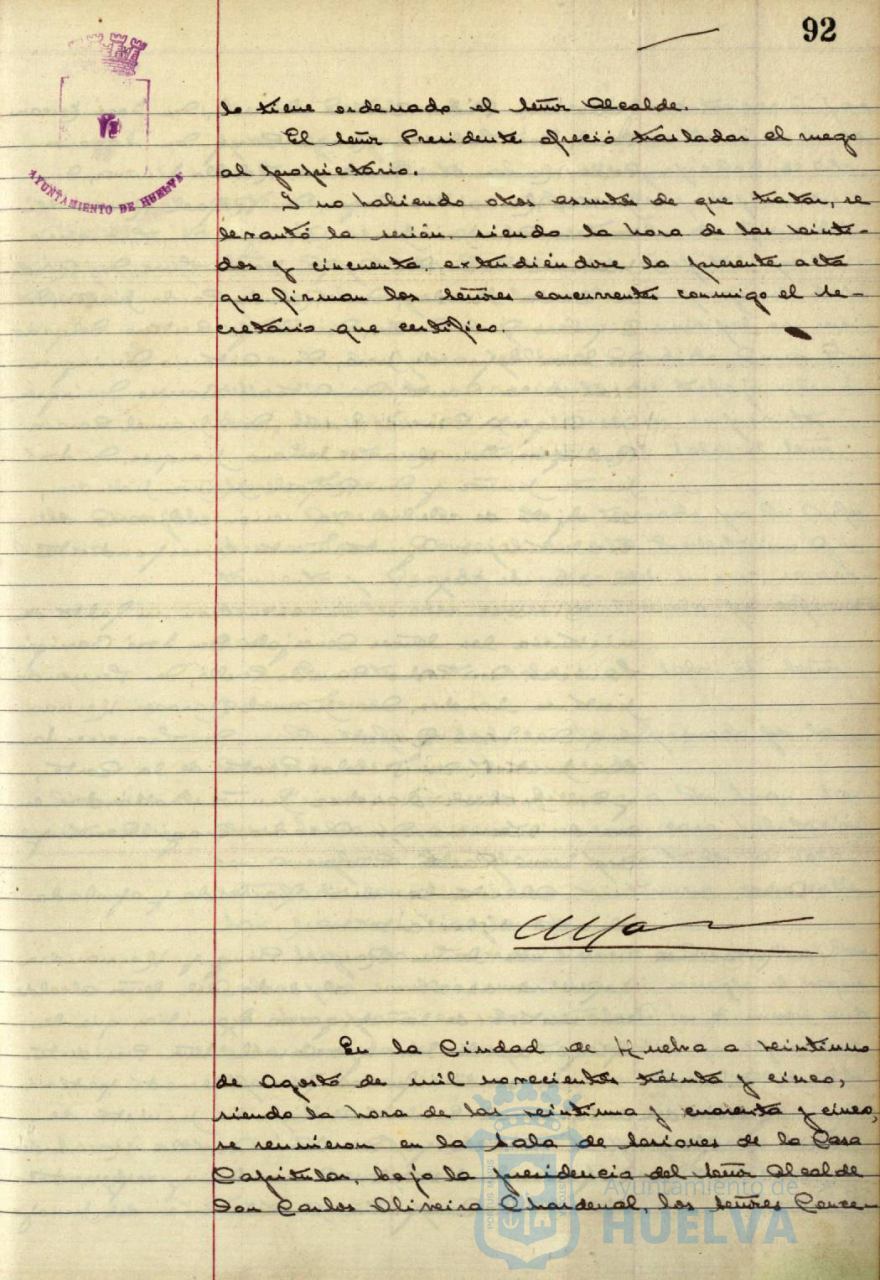 92
AYUNTAMIENTO DE HUELVA
lo tiene ordenado el Señor Alcalde.
El Señor Presidente ofreció trasladar el ruego
al propietario.
Y no habiendo otros asuntos de que tratar, se
levantó la sesión, siendo la hora de las veinti-
dos y cincuenta, extendiéndose la presente acta
que firman los Señores concurrentes conmigo el Se-
cretario que certifico.
En la Ciudad de Huelva a veintiuno
de Agosto de mil novecientos treinta y cinco,
siendo la hora de las veintiuna y cuarenta y cinco,
se reunieron en la Sala de Sesiones de la Casa
Capitular, bajo la presidencia del Señor Alcalde
Don Carlos Oliveira Chardenal, los Señores Conce-
Ayuntamiento de
HUELVA